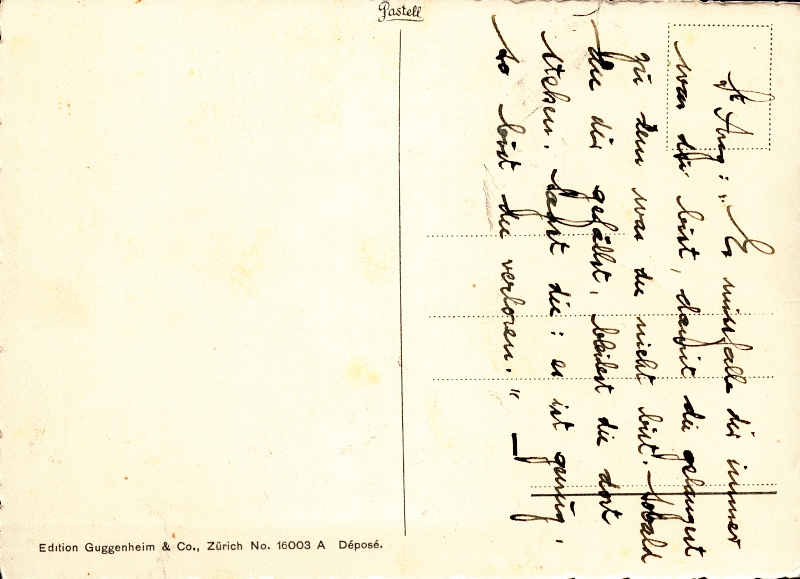 Pastell
St. Aug: "Es missfalle dir immer
was du bist, damit du gelangest
zu dem was du nicht bist. Sobald
du dir gefällst, bleibst du dort
stehen. Sagst du: es ist genug,
so bist du verloren."
Edition Guggenheim & Co., Zürich No. 16003 A Déposé.